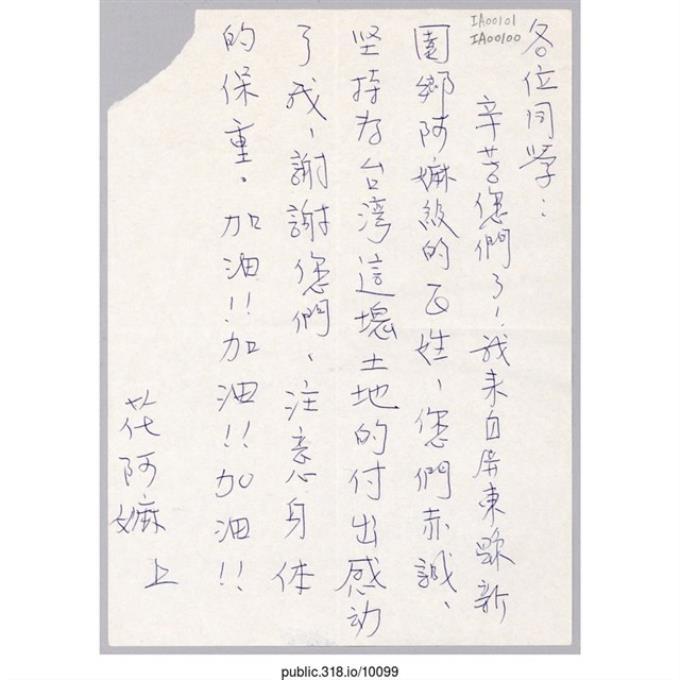 IA00101
IA00100
各位同學：
辛苦您們了！我来自屏東縣新
園鄉阿嬤級的百姓，您們赤誠、
坚持为台湾這塊土地的付出感动
了我，謝謝您們、注意身体
的保重。加油!!加油!!加油!!
花阿嬤上
public.318.io/10099